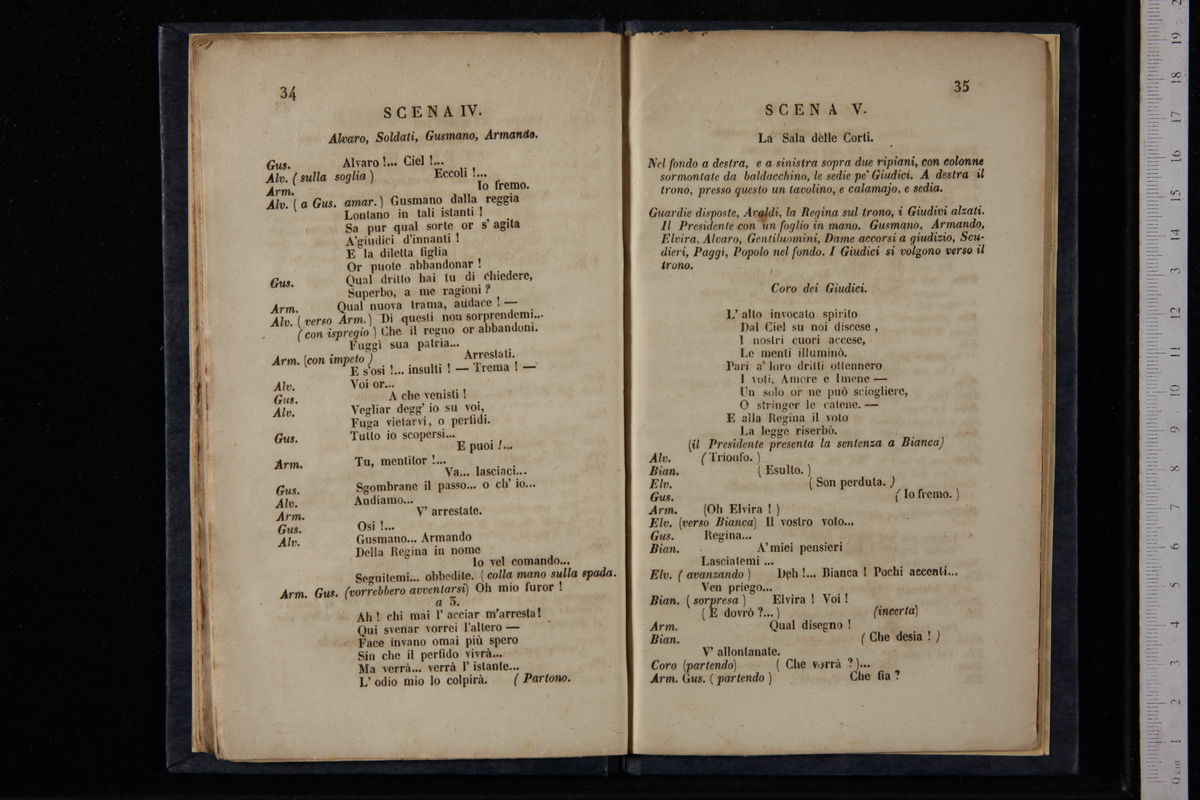 34
SCENA IV.
Alvaro, Soldati, Gusmano, Armando.
Gus. Alvaro !... Ciel !...
Alv. ( sulla soglia ) Eccoli !...
Arm. Io fremo.
Alv. ( a Gus. amar. ) Gusmano dalla reggia
Lontano in tali istanti !
Sa pur qual sorte or s' agita
A'giudici d'innanti !
E la diletta figlia
Or puote abbandonar !
Gus. Qual dritto hai tu di chiedere,
Superbo, a me ragioni ?
Arm. Qual nuova trama, audace ! —
Alv. ( verso Arm. ) Di questi non sorprendemi...
( con ispregio ) Che il regno or abbandoni.
Fuggi sua patria...
Arm. (con impeto ) Arrestati.
E s'osi !... insulti ! — Trema ! —
Alv. Voi or...
Gus. A che venisti !
Alv. Vegliar degg' io su voi,
Fuga vietarvi, o perfidi.
Gus. Tutto io scopersi...
E puoi !...
Arm. Tu, mentitor !...
Va... lasciaci...
Gus. Sgombrane il passo... o ch' io...
Alv. Andiamo...
Arm. V' arrestate.
Gus. Osi !...
Alv. Gusmano... Armando
Della Regina in nome
Io vel comando...
Seguitemi... obbedite. ( colla mano sulla spada.
Arm. Gus. (vorrebbero avventarsi) Oh mio furor !
a 3.
Ah ! chi mai l' acciar m'arresta!
Qui svenar vorrei l'altero —
Face invano omai più spero
Sin che il perfido vivrà...
Ma verrà... verrà l' istante...
L' odio mio lo colpirà. ( Partono.
35
SCENA V.
La Sala delle Corti.
Nel fondo a destra, e a sinistra sopra due ripiani, con colonne
sormontate da baldacchino, le sedie pe' Giudici. A destra il
trono, presso questo un tavolino, e calamajo, e sedia.
Guardie disposte, Araldi, la Regina sul trono, i Giudivi alzati.
Il Presidente con un foglio in mano. Gusmano, Armando,
Elvira, Alvaro, Gentiluomini, Dame accorsi a giudizio, Scu-
dieri, Paggi, Popolo nel fondo. I Giudici si volgono verso il
trono.
Coro dei Giudici.
L' alto invocato spirito
Dal Ciel su noi discese ,
I nostri cuori accese,
Le menti illuminò.
Pari a' loro dritti ottennero
I voti, Amore e Imene —
Un solo or ne può sciogliere,
O stringer le catene. —
E alla Regina il voto
La legge riserbò.
(il Presidente presenta la sentenza a Bianca)
Alv. ( Trionfo. )
Bian. ( Esulto. )
Elv. ( Son perduta. )
Gus. ( Io fremo. )
Arm. (Oh Elvira ! )
Elv. (verso Bianca) Il vostro voto...
Gus. Regina...
Bian. A' miei pensieri
Lasciatemi ...
Elv. ( avanzando ) Deh !... Bianca ! Pochi accenti...
Ven priego...
Bian. ( sorpresa ) Elvira ! Voi !
( E dovrò ?... ) (incerta)
Arm. Qual disegno !
Bian. ( Che desia ! )
V' allontanate.
Coro (partendo) ( Che vorrà ? )...
Arm. Gus. ( partendo ) Che fia ?